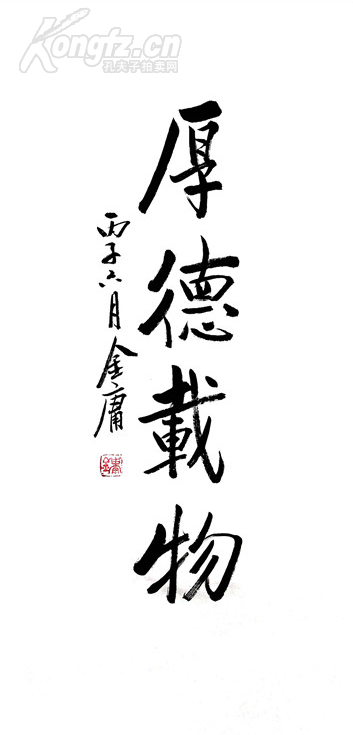 Kongfz.cn
孔夫子拍卖网
厚德載物
丙子六月金庸